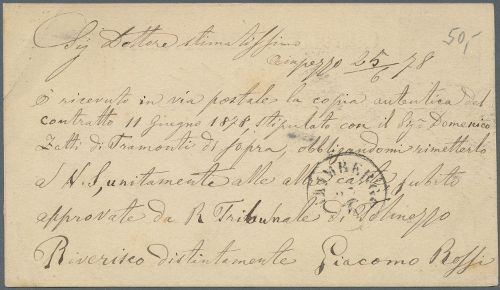 Sig Dottore stimatissimo
50,-
Ampezzo 25/6 78
È ricevuto in via postale la copia autentica del
contratto 11 Giugno 1878, stipulato con il Sigr Domenico
Zatti di Tramonti di Sopra, obbligandomi rimetterlo
a V. S, unitamente alle altre carte subito
approvate da R Tribunale di Tolmezzo
Riverisco distintamente Giacomo Rossi